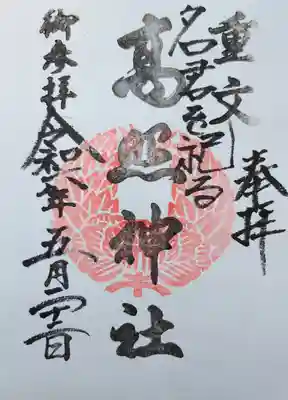 奉拝
重文
名君を祀る
高照神社
御参拝
令和
年
五月
日